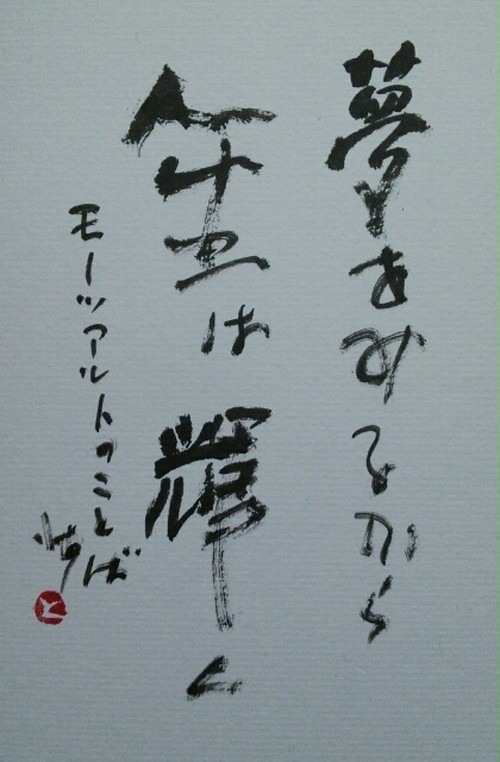 夢をみるから
人生は輝く
モーツァルトのことば
と